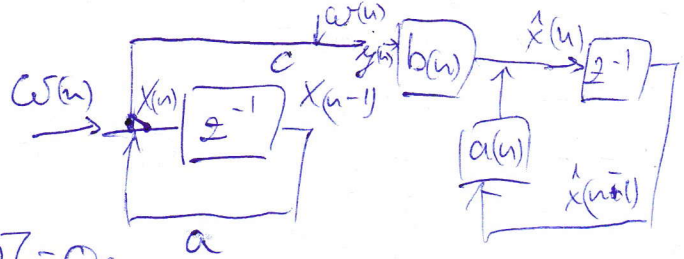 ω(n)
x̂(n)
c
y(n)
b(n)
z⁻¹
ω(n)
X(n)
z⁻¹
X(n-1)
a(n)
x̂(n-1)
a